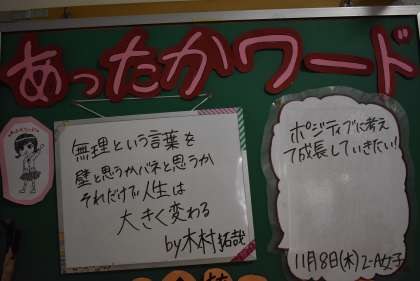 あったかワード
無理という言葉を
壁と思うかバネと思うか
それだけで人生は
大きく変わる
by木村拓哉
ポジティブに考え
て成長していきたい!
11月8日(木) 2-A女子